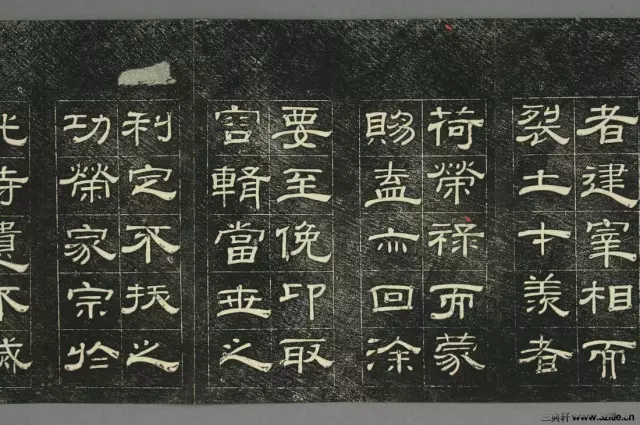 者建宰相而
裂土才羨者
荷榮祿而蒙
賜盍亦回涂
要至俛卬取
容輯當世之
利定不拔之
功榮家宗於
遺不